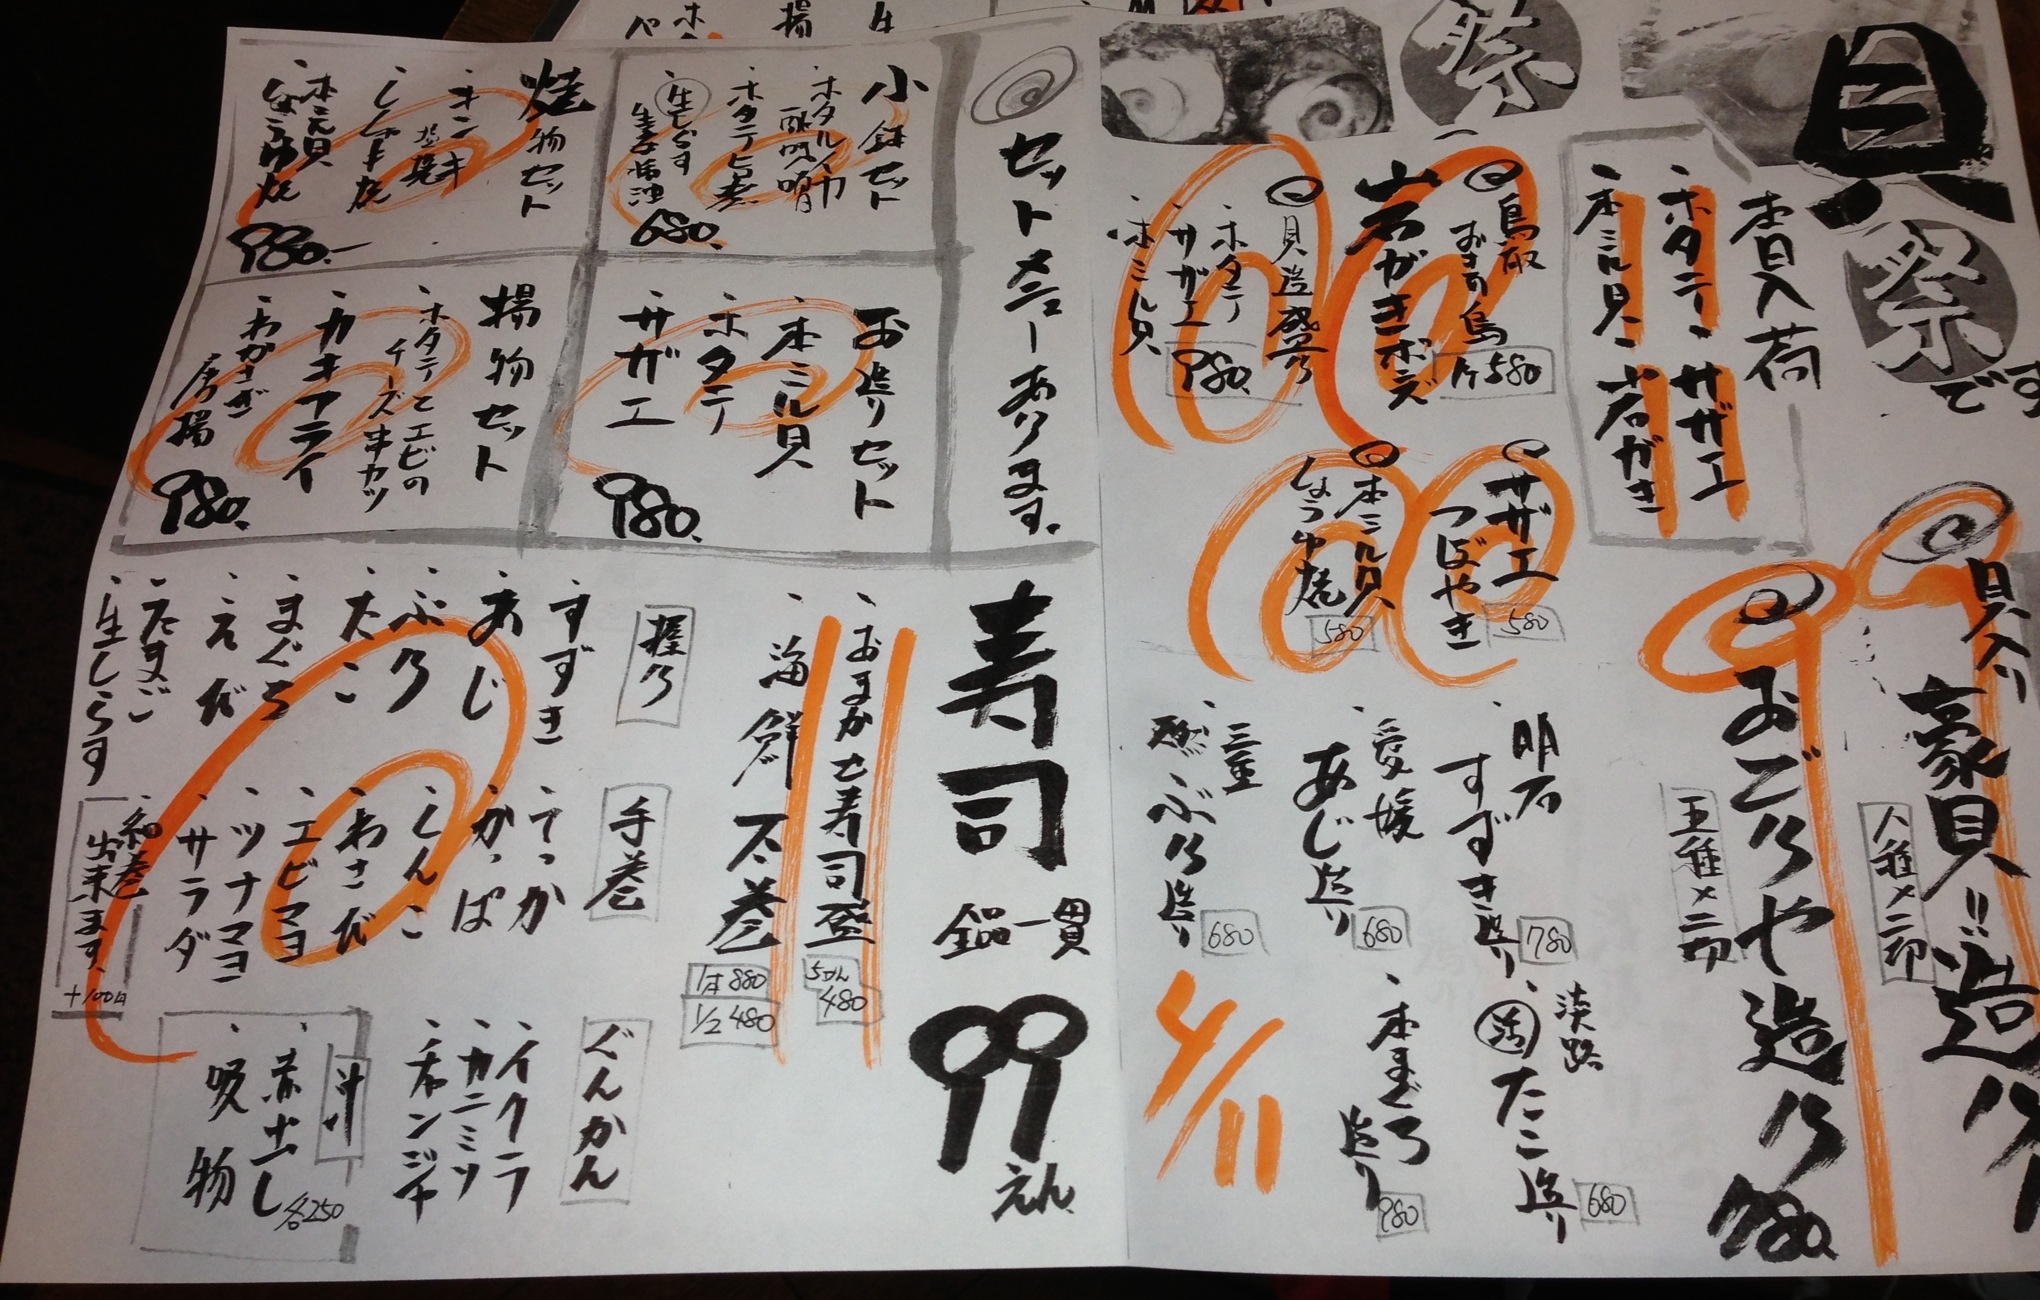 貝
祭
です
祭
本日入荷
ホタテ、サザエ
本ミル貝、岩がき
貝入り
豪貝!!造り
八種×二切
おごりや造り
五種×二切
980.
鳥取
おきの島
岩がきポン酢
片580
貝造盛り
・ホタテ
・サザエ
・本ミル貝
980.
サザエ
つぼやき
580
本ミル貝
しょうゆ焼
580
明石
すずき造り
780
・愛媛
あじ造り
680
・三重
天然ぶり造り
680
・淡路
活たこ造り
680
・本まぐろ
造り
980
4/11
セットメニューあります。
小鉢セット
・ホタルイカ
・ホタテヒモ煮
・生しらす
生姜醤油
680.
焼物セット
・キンキ
塩焼
・ししゃも焼
・本ミル貝
しょうゆ焼
980.
お造りセット
・本ミル貝
・ホタテ
・サザエ
980.
揚物セット
・ホタテとエビの
チーズ串カツ
・カキフライ
・わかさぎ
唐揚
980.
寿司
全品一貫
99えん
・おまかせ寿司盛
5かん
480
・海鮮太巻
1本880
1/2 480
握り
・すずき
・あじ
・ぶり
・たこ
・まぐろ
・えび
・たまご
・生しらす
手巻
・てっか
・かっぱ
・しんこ
・わさび
・エビマヨ
・ツナマヨ
・サラダ
・細巻
出来ます。
+100円
ぐんかん
・イクラ
・カニミソ
・チャンジャ
汁
・赤出し
・吸物
各250